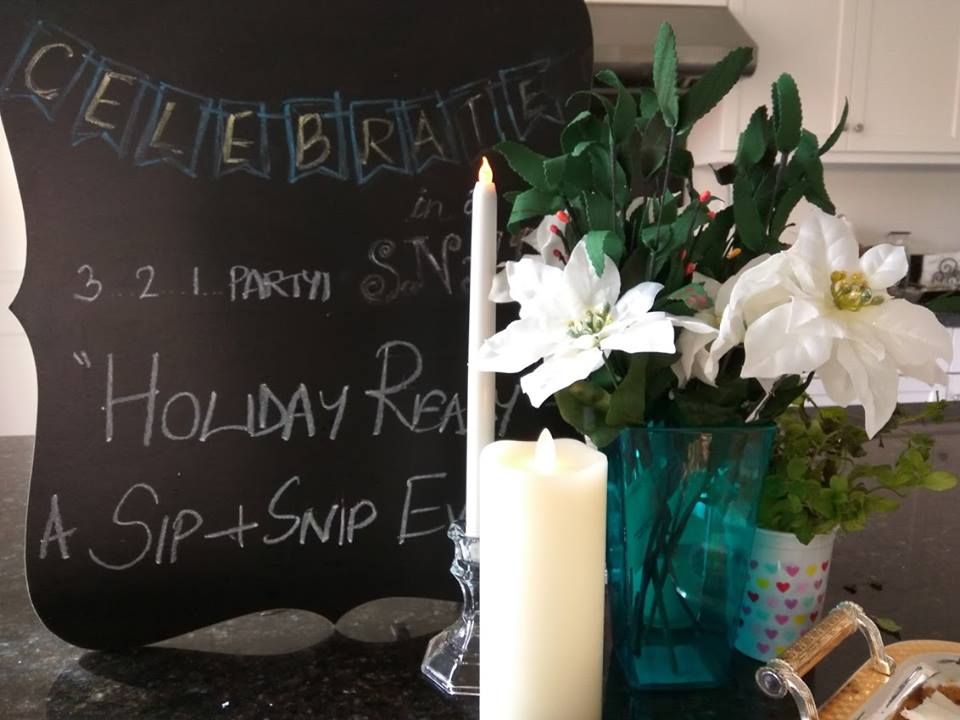 CELEBRATE
in a
3...2...1...PARTY!
"HOLIDAY
A SIP + SNIP